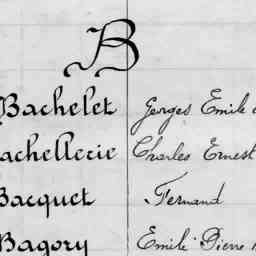 B
Bachelet Georges Emile
achellerie Charles Ernest
Bacquet Fernand
Bagory Emile Pierre